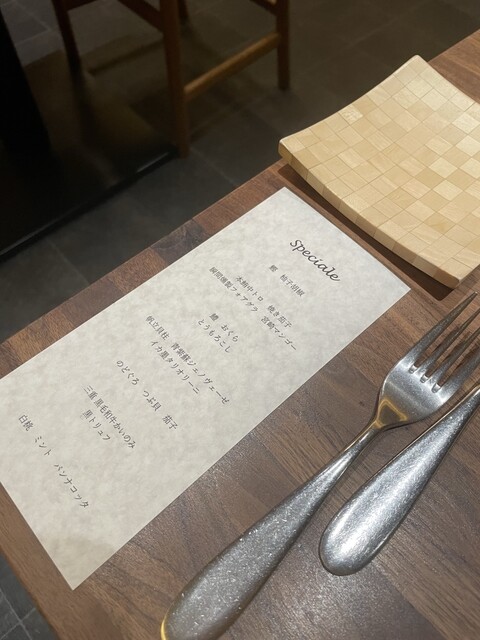 Speciale
鰹　柚子胡椒
本鮪中トロ　焼き茄子
瞬間燻製フォアグラ　宮崎マンゴー
鱧　おくら
とうもろこし
帆立貝柱　青紫蘇ジェノヴェーゼ
イカ墨タリオリーニ
のどぐろ　つぶ貝　茄子
三重 黒毛和牛かいのみ
黒トリュフ
白桃　ミント　パンナコッタ